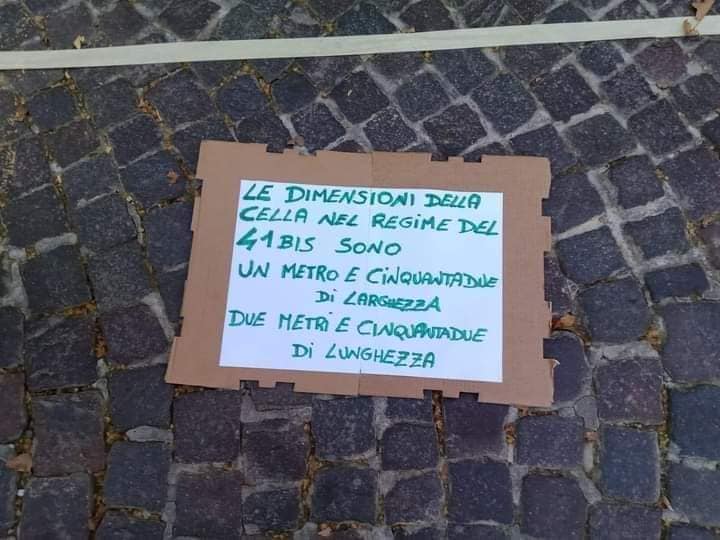 LE DIMENSIONI DELLA
CELLA NEL REGIME DEL
41 BIS SONO
UN METRO E CINQUANTADUE
DI LARGHEZZA
DUE METRI E CINQUANTADUE
DI LUNGHEZZA